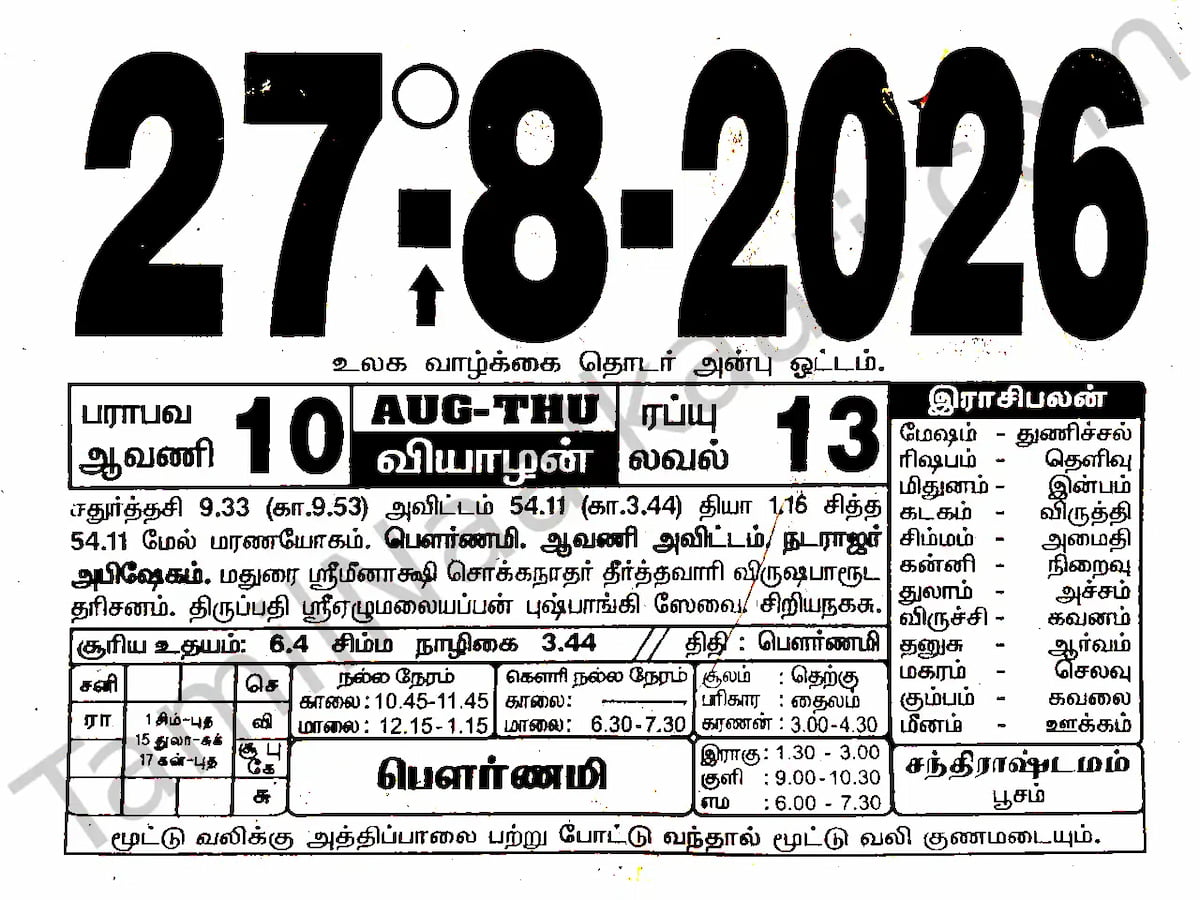 27-8-2026
உலக வாழ்க்கை தொடர் அன்பு ஓட்டம்.
பராபவ ஆவணி 10
AUG-THU
வியாழன்
ரப்யு லவல் 13
சதுர்த்தசி 9.33 (கா.9.53) அவிட்டம் 54.11 (கா.3.44) தியா 1.16 சித்த
54.11 மேல் மரணயோகம். பௌர்ணமி. ஆவணி அவிட்டம். நடராஜர்
அபிஷேகம். மதுரை ஸ்ரீமீனாக்ஷி சொக்கநாதர் தீர்த்தவாரி விருஷபாரூட
தரிசனம். திருப்பதி ஸ்ரீஏழுமலையப்பன் புஷ்பாங்கி ஸேவை. சிறியநகசு.
சூரிய உதயம்: 6.4 சிம்ம நாழிகை 3.44 // திதி : பௌர்ணமி
சனி செ
ரா வி
1 சிம்-புத
15 துலா-சுக்
17 கன்-புத
சூ பு
கே
சு
நல்ல நேரம்
காலை: 10.45-11.45
மாலை: 12.15-1.15
கௌரி நல்ல நேரம்
காலை: ———
மாலை: 6.30-7.30
சூலம் : தெற்கு
பரிகார : தைலம்
காரணன்: 3.00-4.30
பௌர்ணமி
இராகு: 1.30 - 3.00
குளி : 9.00-10.30
எம : 6.00 - 7.30
இராசிபலன்
மேஷம் - துணிச்சல்
ரிஷபம் - தெளிவு
மிதுனம் - இன்பம்
கடகம் - விருத்தி
சிம்மம் - அமைதி
கன்னி - நிறைவு
துலாம் - அச்சம்
விருச்சி - கவனம்
தனுசு - ஆர்வம்
மகரம் - செலவு
கும்பம் - கவலை
மீனம் - ஊக்கம்
சந்திராஷ்டமம்
பூசம்
மூட்டு வலிக்கு அத்திப்பாலை பற்று போட்டு வந்தால் மூட்டு வலி குணமடையும்.